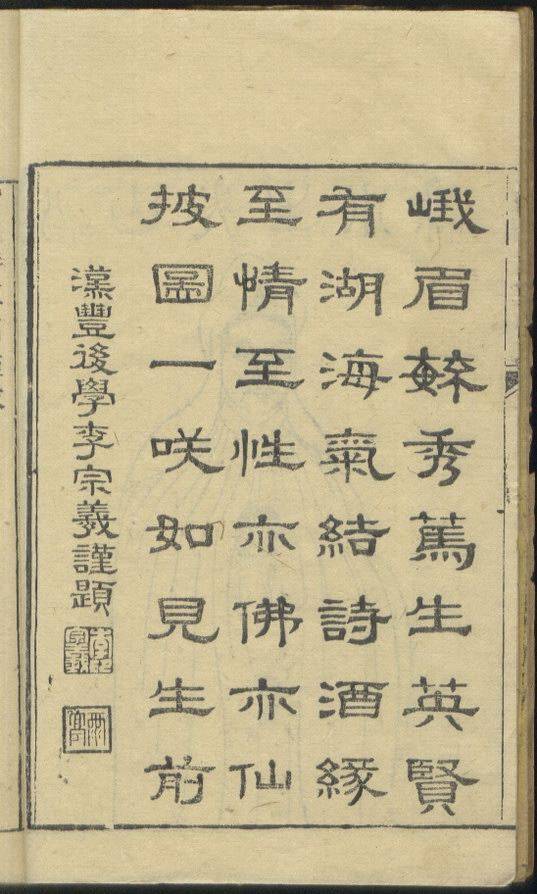 峨眉毓秀篤生英賢
有湖海氣結詩酒緣
至情至性亦佛亦仙
披圖一咲如見生前
漢豐後學李宗羲謹題
李印宗羲
雨亭